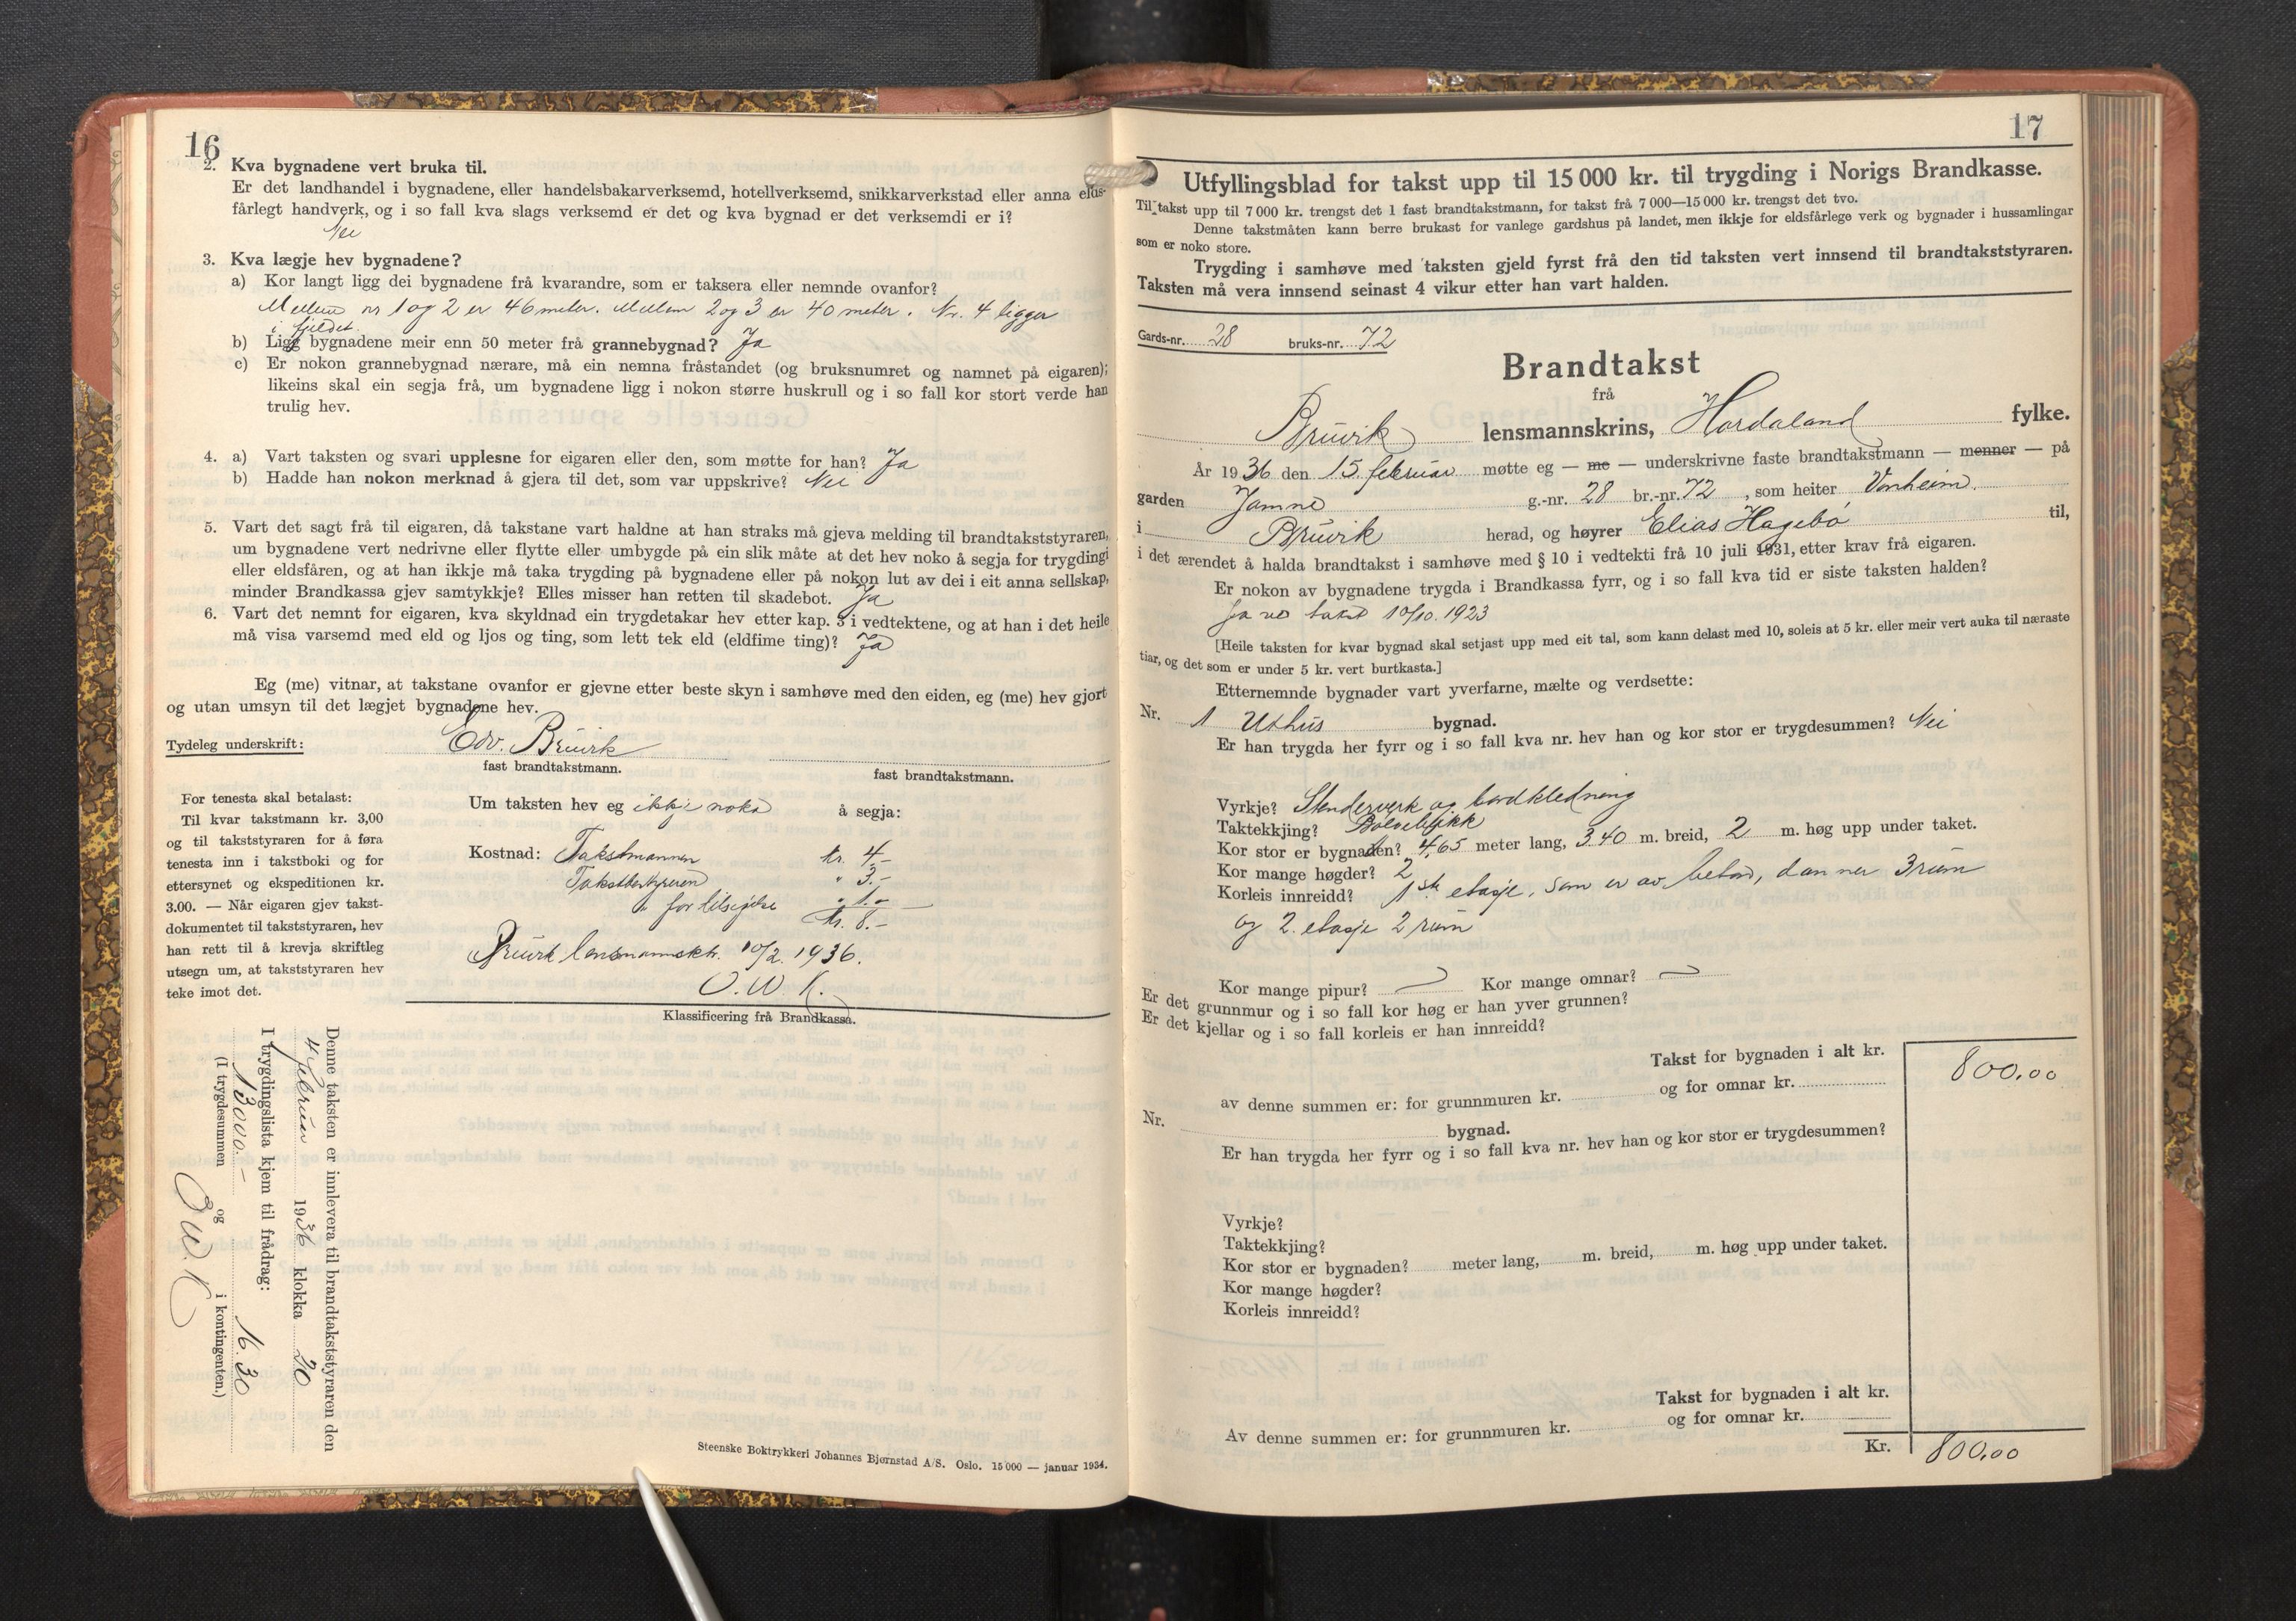 16
2. Kva bygnadene vert bruka til.
Er det landhandel i bygnadene, eller handelsbakarverksemd, hotellverksemd, snikkarverkstad eller anna elds-
fårlegt handverk, og i so fall kva slags verksemd er det og kva bygnad er det verksemdi er i?
Nei
3. Kva lægje hev bygnadene?
a) Kor langt ligg dei bygnadene frå kvarandre, som er taksera eller nemnde ovanfor?
Mellem nr 1 og 2 er 46 meter. Mellem 2 og 3 er 40 meter. Nr. 4 ligger
i fjeldet.
b) Ligg bygnadene meir enn 50 meter frå grannebygnad? Ja
c) Er nokon grannebygnad nærare, må ein nemna fråstandet (og bruksnumret og namnet på eigaren);
likeins skal ein segja frå, um bygnadene ligg i nokon større huskrull og i so fall kor stort verde han
trulig hev.
4. a) Vart taksten og svari upplesne for eigaren eller den, som møtte for han? Ja
b) Hadde han nokon merknad å gjera til det, som var uppskrive? Nei
5. Vart det sagt frå til eigaren, då takstane vart haldne at han straks må gjeva melding til brandtakststyraren,
um bygnadene vert nedrivne eller flytte eller umbygde på ein slik måte at det hev noko å segja for trygdingi
eller eldsfåren, og at han ikkje må taka trygding på bygnadene eller på nokon lut av dei i eit anna sellskap,
minder Brandkassa gjev samtykkje? Elles misser han retten til skadebot. Ja
6. Vart det nemnt for eigaren, kva skyldnad ein trygdetakar hev etter kap. 5 i vedtektene, og at han i det heile
må visa varsemd med eld og ljos og ting, som lett tek eld (eldfime ting)? Ja
Eg (me) vitnar, at takstane ovanfor er gjevne etter beste skyn i samhøve med den eiden, eg (me) hev gjort
og utan umsyn til det lægjet bygnadene hev.
Tydeleg underskrift: Edv. Bruvik
fast brandtakstmann. fast brandtakstmann.
For tenesta skal betalast:
Til kvar takstmann kr. 3,00
og til takststyraren for å føra
tenesta inn i takstboki og for
ettersynet og ekspeditionen kr.
3.00. — Når eigaren gjev takst-
dokumentet til takststyraren, hev
han rett til å krevja skriftleg
utsegn um, at takststyraren hev
teke imot det.
Um taksten hev eg ikkje noko å segja:
Kostnad: Takstmannen kr. 4.-
Takstbestyreren " 3.-
" for tilsigelse " 1.-
kr. 8.-
Bruvik lensmannsktr. 10/2. 1936.
O. W. K.
Klassificering frå Brandkassa.
Denne taksten er innlevera til brandtakststyraren den
4 februar 1936 klokka 20
I trygdingslista kjem til frådrag:
13000.- 16.30
(I trygdesummen og i kontingenten.)
O W. K
Steenske Boktrykkeri Johannes Bjørnstad A/S. Oslo. 15 000 — januar 1934.
17
Utfyllingsblad for takst upp til 15 000 kr. til trygding i Norigs Brandkasse.
Til takst upp til 7 000 kr. trengst det 1 fast brandtakstmann, for takst frå 7 000—15 000 kr. trengst det tvo.
Denne takstmåten kann berre brukast for vanlege gardshus på landet, men ikkje for eldsfårlege verk og bygnader i hussamlingar
som er noko store.
Trygding i samhøve med taksten gjeld fyrst frå den tid taksten vert innsend til brandtakststyraren.
Taksten må vera innsend seinast 4 vikur etter han vart halden.
Gards-nr. 28 bruks-nr. 72
Brandtakst
frå
Bruvik lensmannskrins, Hordaland fylke.
År 1936 den 15. februar møtte eg — me — underskrivne faste brandtakstmann — menner — på
garden Jamne g.-nr. 28 br.-nr. 72, som heiter Vonheim.
i Bruvik herad, og høyrer Elias Hagebø til,
i det ærendet å halda brandtakst i samhøve med § 10 i vedtekti frå 10 juli 1931, etter krav frå eigaren.
Er nokon av bygnadene trygda i Brandkassa fyrr, og i so fall kva tid er siste taksten halden?
Ja ved takst 10/10. 1923
[Heile taksten for kvar bygnad skal setjast upp med eit tal, som kann delast med 10, soleis at 5 kr. eller meir vert auka til næraste
tiar, og det som er under 5 kr. vert burtkasta.]
Etternemnde bygnader vart yverfarne, mælte og verdsette:
Nr. 1 Uthus bygnad.
Er han trygda her fyrr og i so fall kva nr. hev han og kor stor er trygdesummen? Nei
Vyrkje? Stenderverk og bordkledning
Taktekkjing? Bølgeblikk
Kor stor er bygnaden? 4,65 meter lang, 3.40 m. breid, 2 m. høg upp under taket.
Kor mange høgder? 2
Korleis innreidd? 1ste etasje, som er av beton, danner 3 rum
og 2. etasje 2 rum
Kor mange pipur? Kor mange omnar?
Er det grunnmur og i so fall kor høg er han yver grunnen?
Er det kjellar og i so fall korleis er han innreidd?
Takst for bygnaden i alt kr. 800.00
av denne summen er: for grunnmuren kr. og for omnar kr.
Nr. bygnad.
Er han trygda her fyrr og i so fall kva nr. hev han og kor stor er trygdesummen?
Vyrkje?
Taktekkjing?
Kor stor er bygnaden? meter lang, m. breid, m. høg upp under taket.
Kor mange høgder?
Korleis innreidd?
Takst for bygnaden i alt kr.
Av denne summen er: for grunnmuren kr. og for omnar kr.
Kr. 800.00